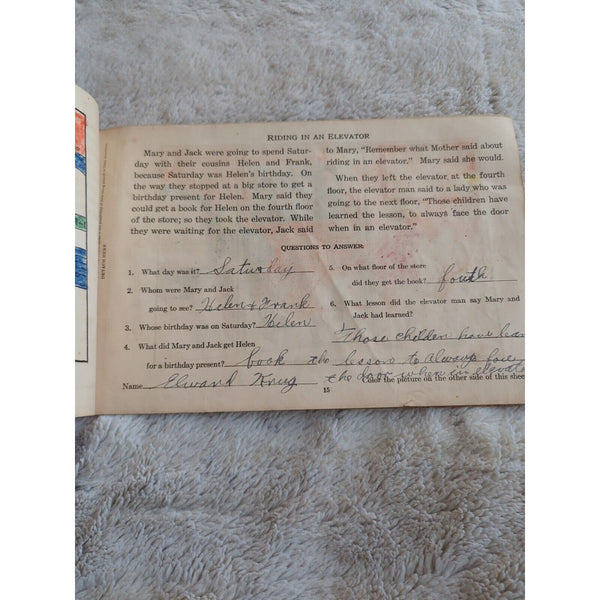 RIDING IN AN ELEVATOR
Mary and Jack were going to spend Satur-
day with their cousins Helen and Frank,
because Saturday was Helen's birthday. On
the way they stopped at a big store to get a
birthday present for Helen. Mary said they
could get a book for Helen on the fourth floor
of the store; so they took the elevator. While
they were waiting for the elevator, Jack said
to Mary, "Remember what Mother said about
riding in an elevator." Mary said she would.
When they left the elevator at the fourth
floor, the elevator man said to a lady who was
going to the next floor, "Those children have
learned the lesson, to always face the door
when in an elevator."
QUESTIONS TO ANSWER:
1. What day was it? Saturday
2. Whom were Mary and Jack
going to see? Helen & Frank
3. Whose birthday was on Saturday? Helen
4. What did Mary and Jack get Helen
for a birthday present? book
Name Elward Krug
5. On what floor of the store
did they get the book? fouth
6. What lesson did the elevator man say Mary and
Jack had learned?
Those children have lear
the lesson to always face
the door when in elevato
Color the picture on the other side of this shee
15
DETACH HERE